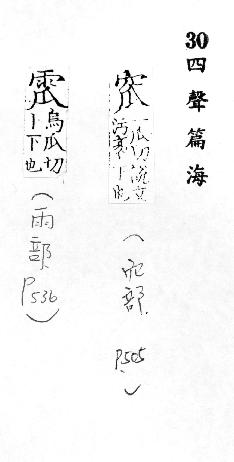 30四聲篇海
窊
一瓜切說文
污衺下也
(穴部 P.505.)
烏瓜切
卜下也
(雨部 P536)